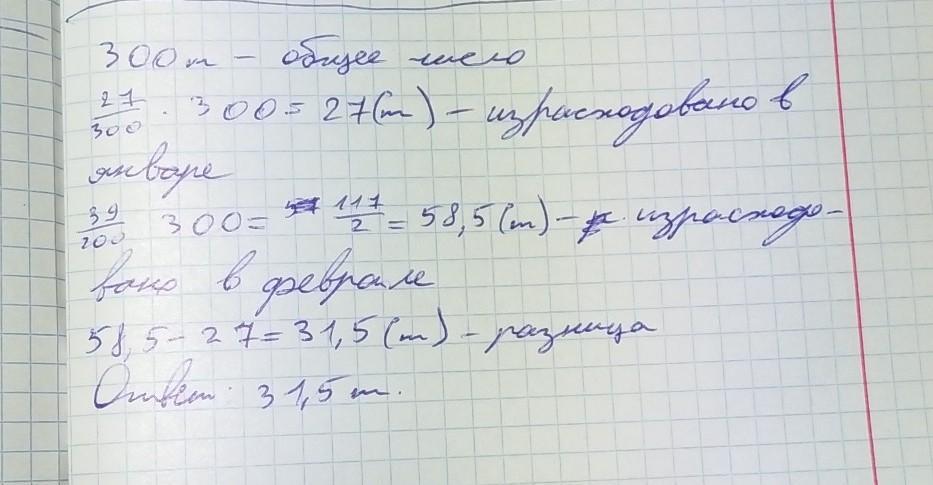 300 т – общее число
27/300 · 300 = 27 (т) – израсходовано в
январе
39/200 300 = 117/2 = 58,5 (т) – израсходо-
вано в феврале
58,5 – 27 = 31,5 (т) – разница
Ответ: 31,5 т.